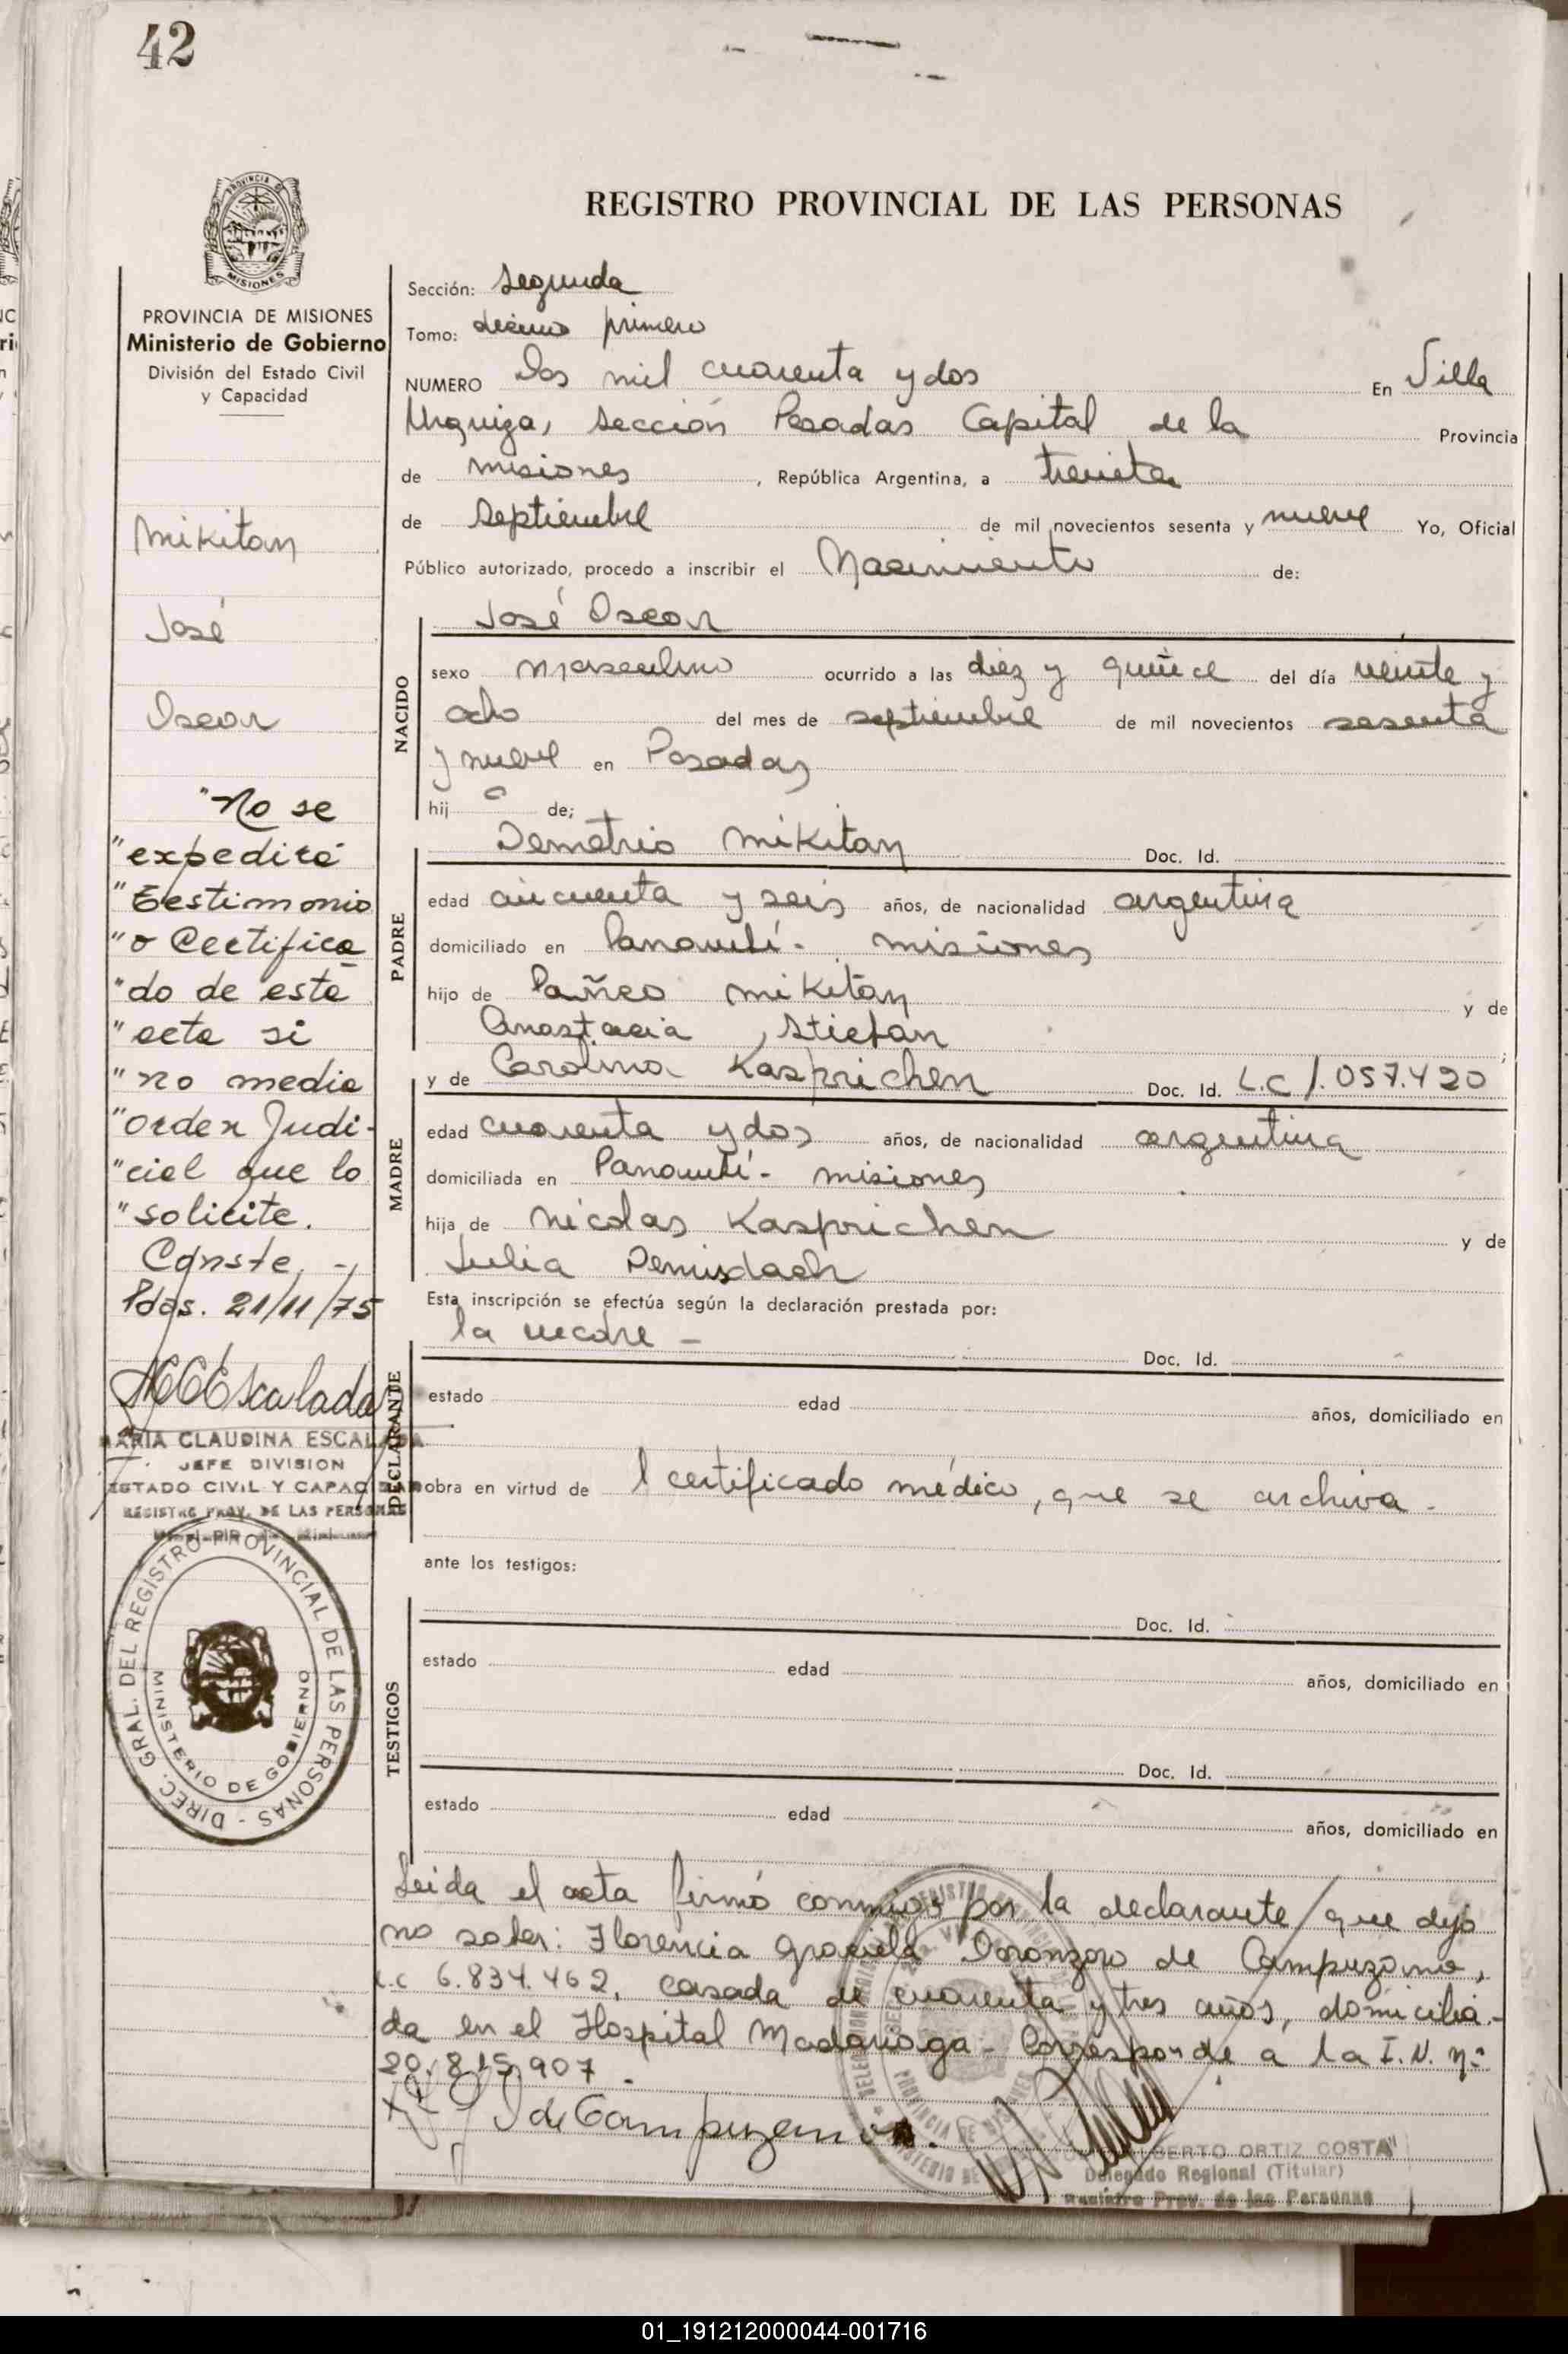 42
REGISTRO PROVINCIAL DE LAS PERSONAS
PROVINCIA DE MISIONES
PROVINCIA DE MISIONES
Ministerio de Gobierno
División del Estado Civil
y Capacidad
Mikitan
José
Oscar
"No se
"expedirá
"Testimonio
"o Certifica
"do de este
"acta si
"no media
"Orden Judi-
"cial que lo
"solicite.
Conste.-
Pdas. 21/11/75
Escalada
MARIA CLAUDINA ESCALADA
JEFE DIVISION
ESTADO CIVIL Y CAPACIDAD
REGISTRO PROV. DE LAS PERSONAS
DIREC. GRAL. DEL REGISTRO PROVINCIAL DE LAS PERSONAS -
MINISTERIO DE GOBIERNO
Sección: Segunda
Tomo: décimo primero
NUMERO Dos mil cuarenta y dos En Villa
Urquiza, Sección Posadas Capital de la Provincia
de Misiones, República Argentina, a treinta
de Septiembre de mil novecientos sesenta y nueve Yo, Oficial
Público autorizado, procedo a inscribir el Nacimiento de:
José Oscar
NACIDO
sexo Masculino ocurrido a las diez y quince del día veinte y
ocho del mes de septiembre de mil novecientos sesenta
y nueve en Posadas
hij o de;
Demetrio Mikitan Doc. Id.
PADRE
edad cincuenta y seis años, de nacionalidad argentina
domiciliado en Panambí - Misiones
hijo de Mikitan y de
Anastacia Stiefan;
y de Carolina Kasprichen Doc. Id. L.C 1.057.420
MADRE
edad cuarenta y dos años, de nacionalidad argentina
domiciliada en Panambí - Misiones
hija de Nicolas Kasprichen y de
Julia
Esta inscripción se efectúa según la declaración prestada por:
la madre - Doc. Id.
DECLARANTE
estado edad años, domiciliado en
obra en virtud de l certificado médico, que se archiva -
ante los testigos:
Doc. Id.
TESTIGOS
estado edad años, domiciliado en
Doc. Id.
estado edad años, domiciliado en
Leida el acta firmó conmigo por la declarante que dijo
no saber: Florencia Graciela Doronzoro de Campuzano,
L.C 6.834.462, casada de cuarenta y tres años, domicilia-
da en el Hospital Madariaga - Corresponde a la I.N. nº
20.815.907.
de Campuzano.
ALBERTO ORTIZ COSTA
Delegado Regional (Titular)
Registro Prov. de las Personas
01_191212000044-001716